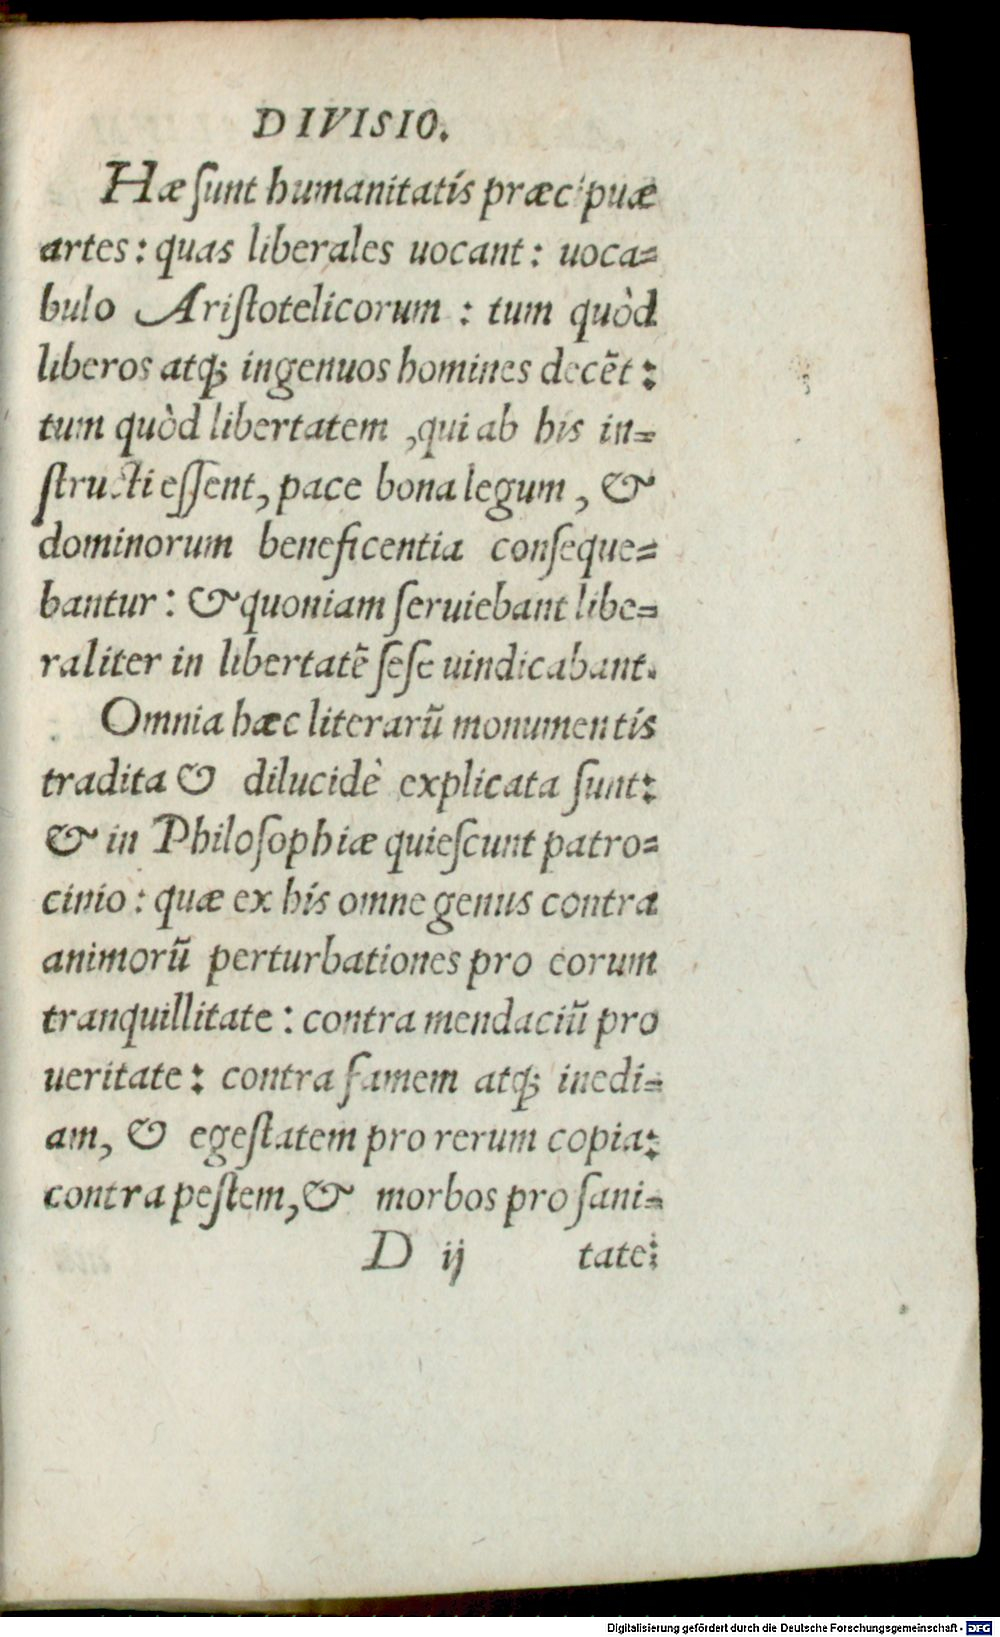 DIVISIO.
Hæ ſunt humanitatis præcipuæ
artes: quas liberales uocant: uoca=
bulo Ariſtotelicorum : tum quòd
liberos atq; ingenuos homines decēt:
tum quòd libertatem ,qui ab his in=
ſtructi eſſent, pace bona legum , &
dominorum beneficentia conſeque=
bantur: & quoniam ſeruiebant libe=
raliter in libertatē ſeſe uindicabant.
Omnia hæc literarū monumentis
tradita & dilucidè explicata ſunt:
& in Philoſophiæ quieſcunt patro=
cinio: quæ ex his omne genus contra
animorū perturbationes pro eorum
tranquillitate: contra mendaciū pro
ueritate: contra famem atq; inedi=
am, & egeſtatem pro rerum copia:
contra peſtem, & morbos pro ſani=
D ij tate:
Digitalisierung gefördert durch die Deutsche Forschungsgemeinschaft - DFG